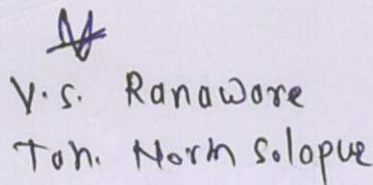 V.S. Ranaware
Tah. North Solapur